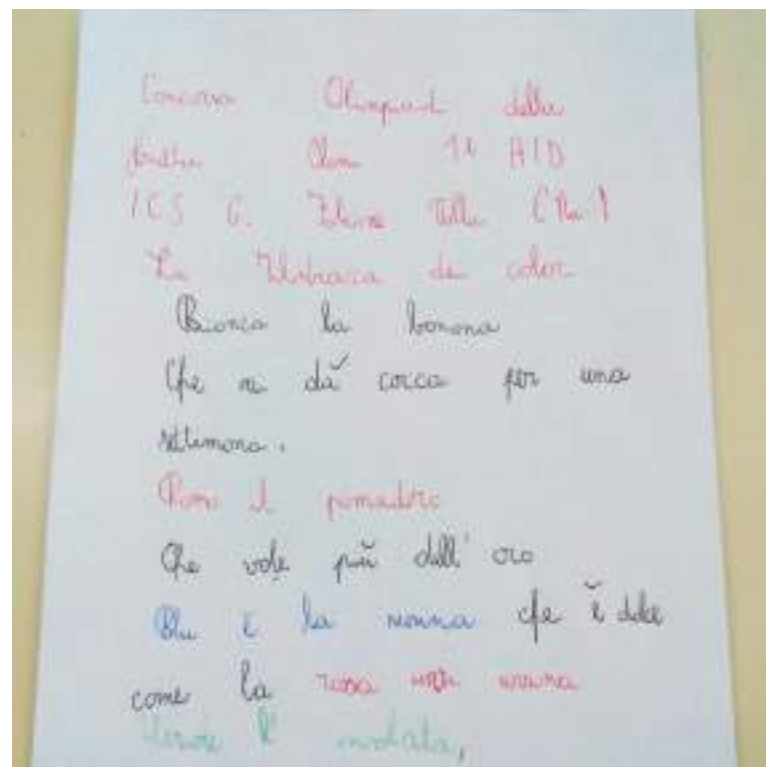 Concorso Olimpiadi della
Classe 1ª A/D
ICS G.
La Filastrocca dei colori
Bianca la banana
Che si dà carica per una
settimana.
Rosso il pomodoro
Che vale più dell' oro
Blu è la nonna che è dolce
come la rosa
Verde l' insalata,